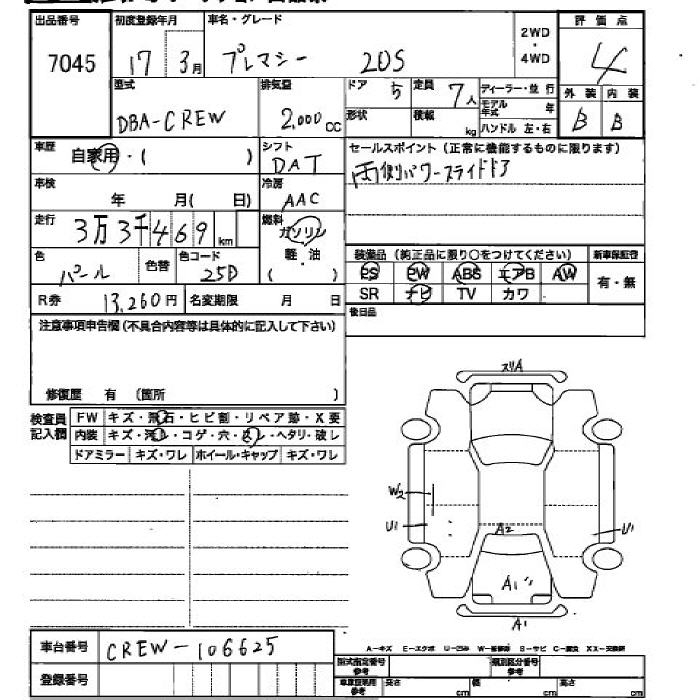 出品番号 初度登録年月 車名・グレード 2WD・4WD 評価点
7045 17 3月 プレマシー 20S 4
型式 排気量 ドア 5 定員 7人 ディーラー・並行 外装 内装
DBA-CREW 2,000cc 形状 積載 kg モデル年式 年 ハンドル 左・右 B B
車歴 自家用・( ) シフト DAT セールスポイント(正常に機能するものに限ります)
両側パワースライドドア
車検 年 月( 日) 冷房 AAC
走行 3万3千469km 燃料 ガソリン 軽・油 ( )
色 パール 色替 色コード 25D 装備品(純正品に限り○をつけてください) 新車保証書
PS PW ABS エアB AW 有・無
R券 13,260円 名変期限 月 日 SR ナビ TV カワ
注意事項申告欄(不具合内容等は具体的に記入して下さい) 後日品
修復歴 有 (箇所 )
検査員記入欄 FW キズ・飛石・ヒビ割・リペア跡・X要
内装 キズ・汚レ・コゲ・穴・ ・ヘタリ・破レ
ドアミラー キズ・ワレ ホイール・キャップ キズ・ワレ
スリA
W2
U1 U1
A2
A1
A1
A-キズ E-エクボ U-凹み W-補修跡 S-サビ C-腐食 XX-交換済
車台番号 CREW-106625
型式指定番号 参考 類別区分番号 参考
登録番号 車庫証明用 参考 長さ cm 幅 cm 高さ cm